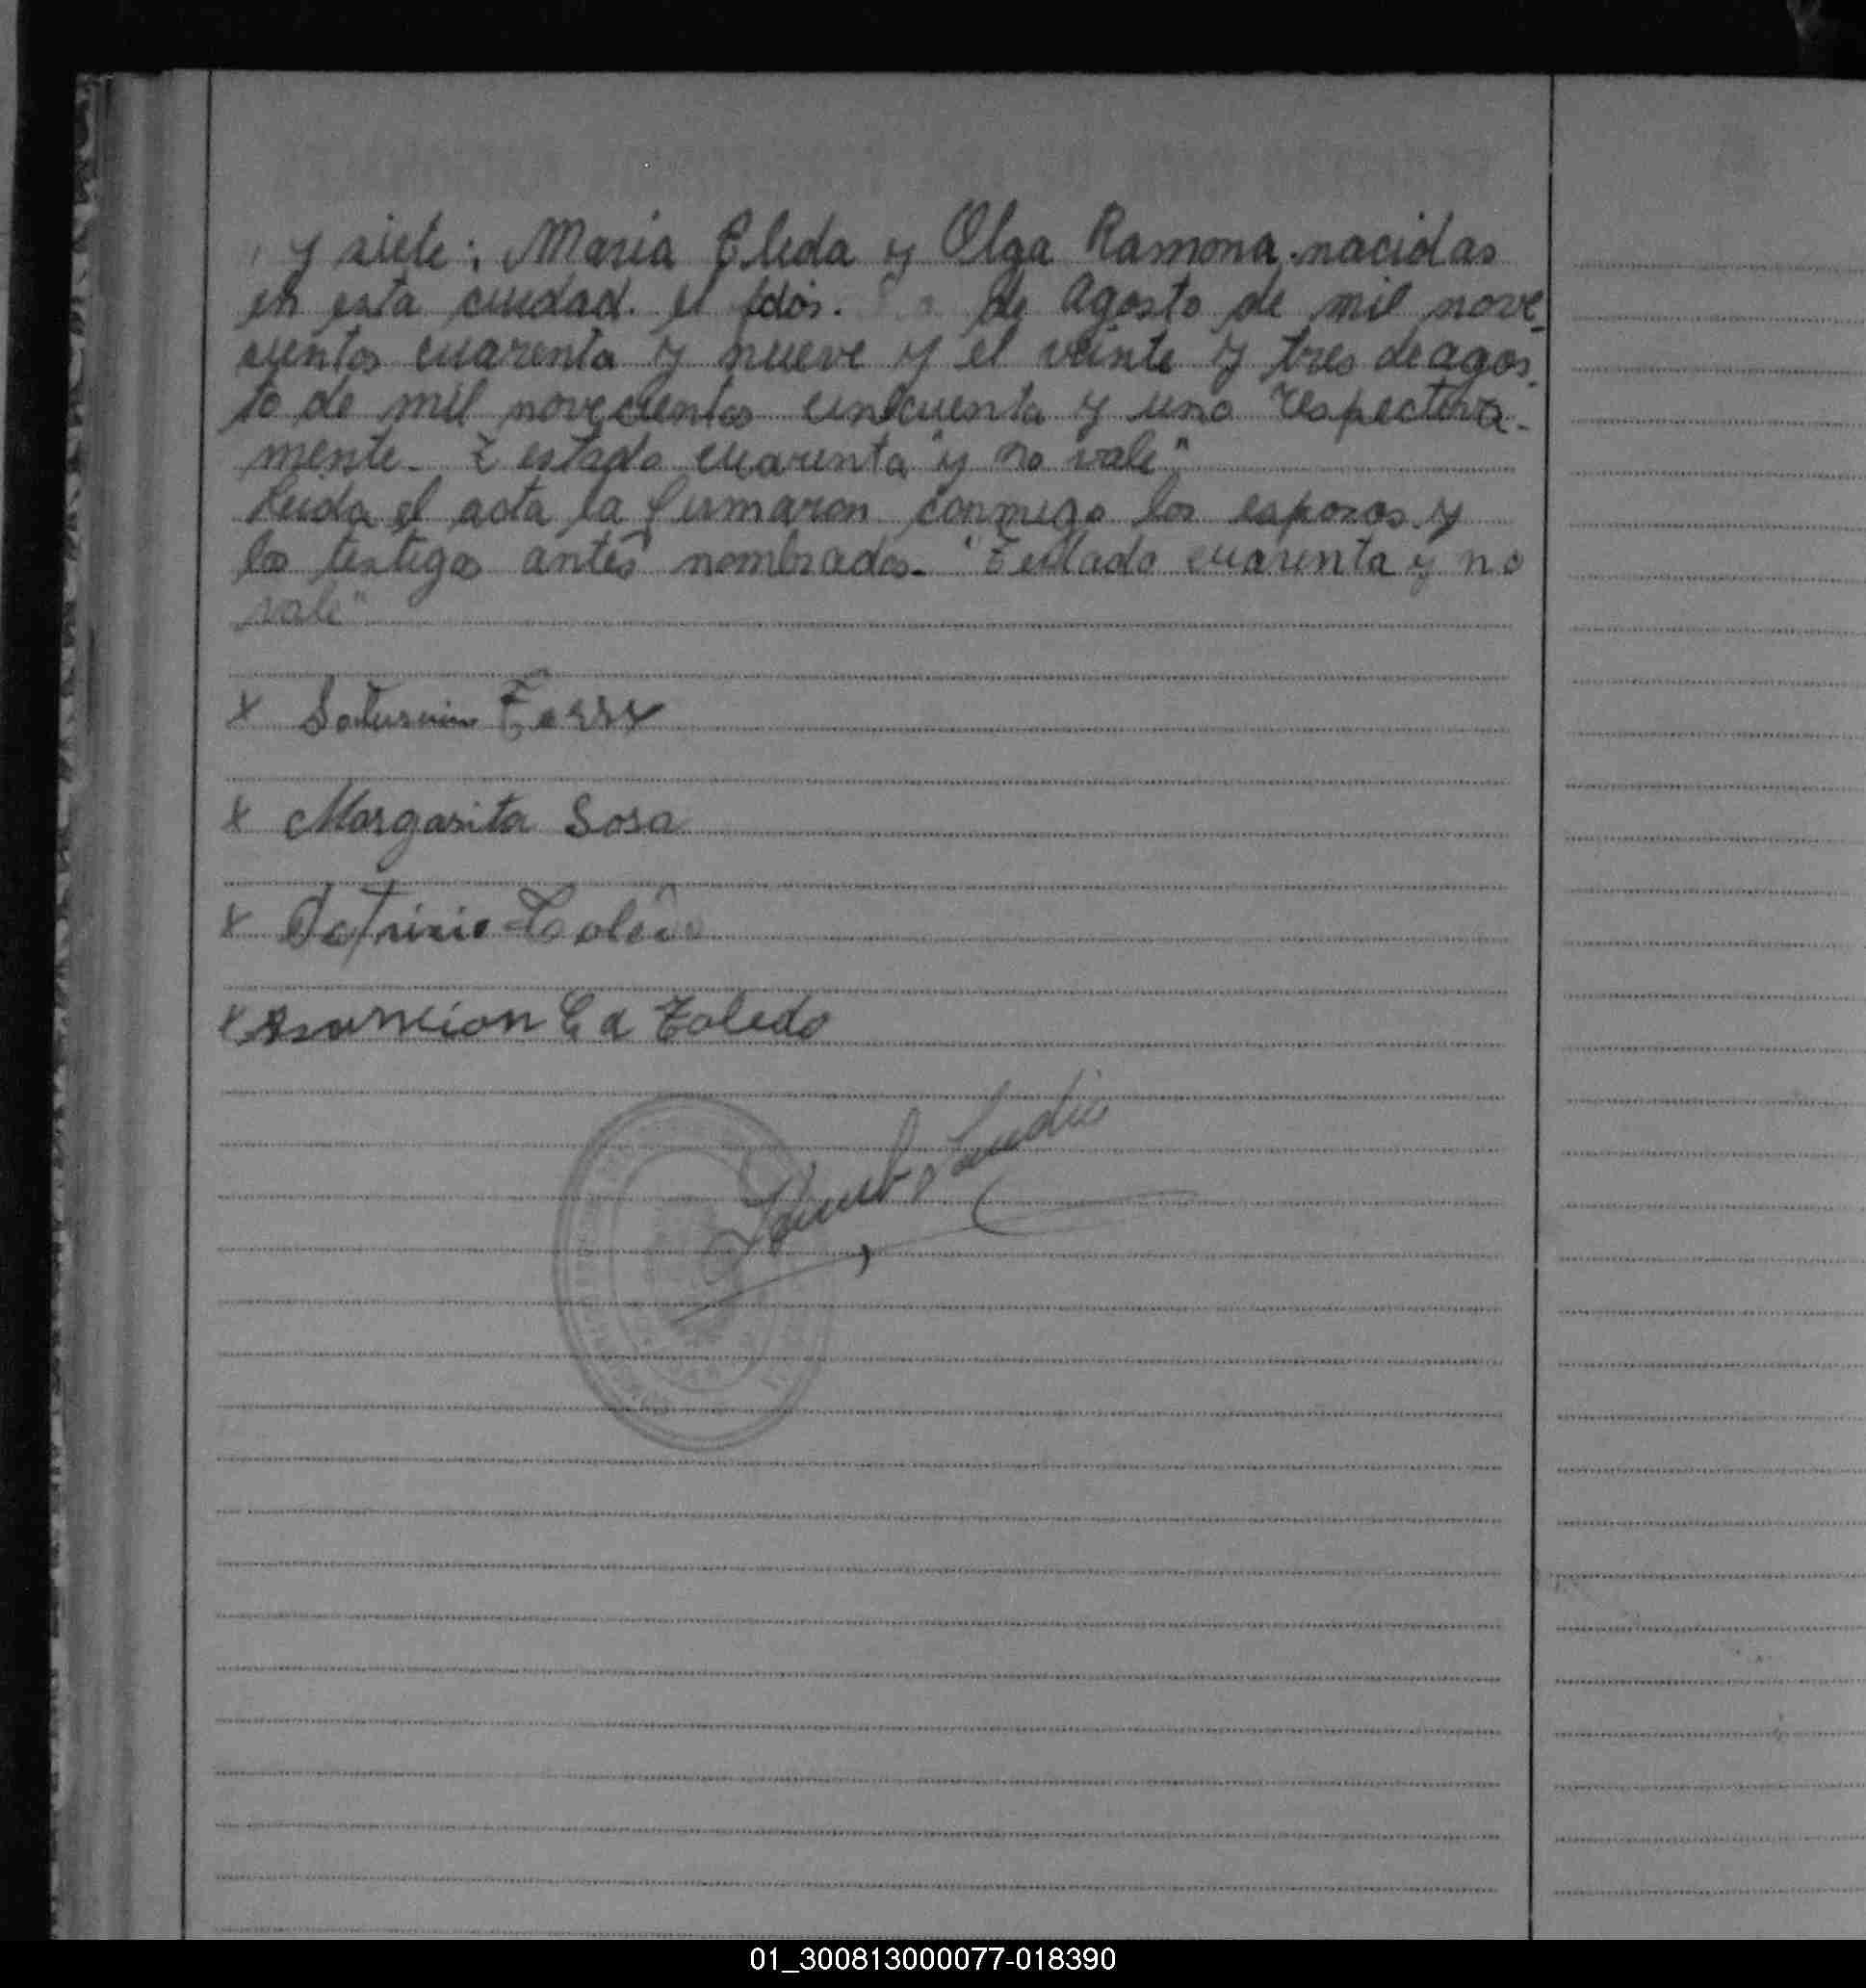 y siete: Maria Eleda y Olga Ramona. nacidas
en esta ciudad. el dos. de Agosto de mil nove_
cientos cuarenta y nueve y el veinte y tres de agos_
to de mil novecientos cincuenta y uno respectiva_
mente_ cuarenta y no vale"
Leida el acta la firmaron conmigo los esposos y
los testigos antes nombrados_ cuarenta y no
vale"
x Saturnino
x Margarita Sosa
x
x Asuncion C d Toledo
01_300813000077-018390